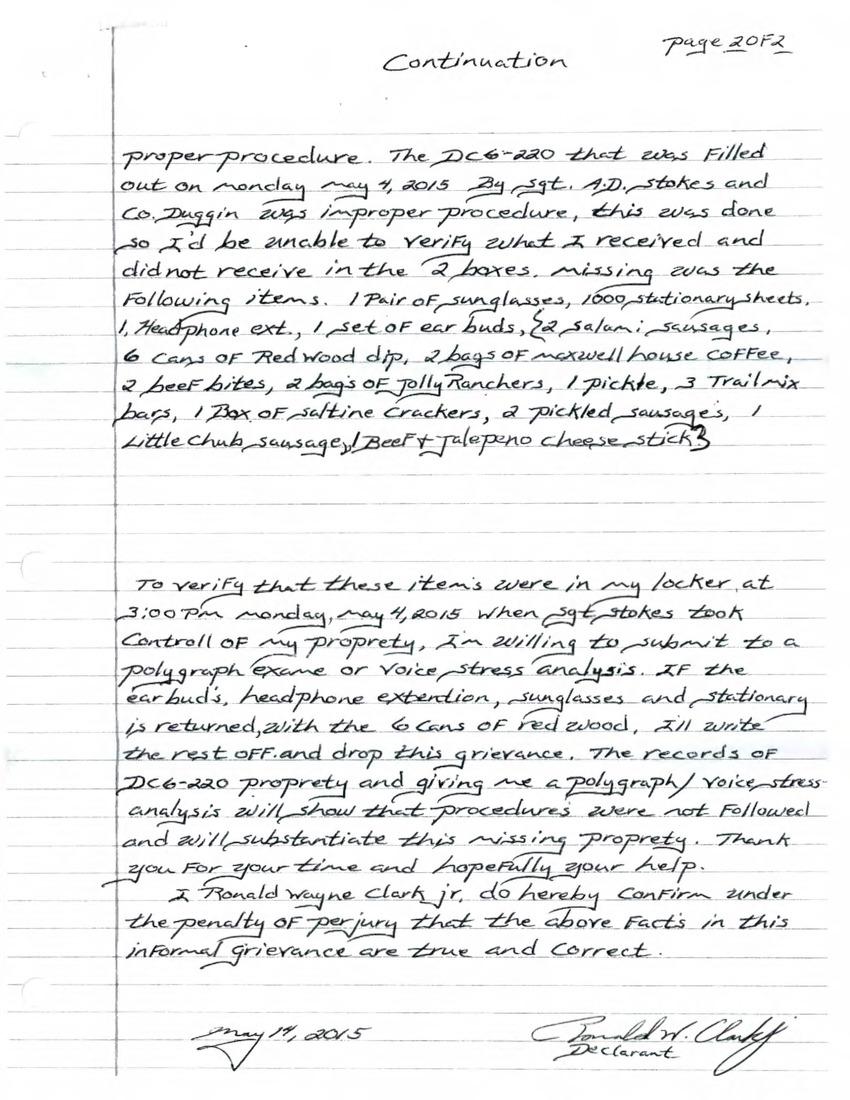 page 2OF2
Continuation
proper procedure. The DC6-220 that was Filled
out on monday may 4, 2015 By sgt. A.D. stokes and
Co. Duggin was improper procedure, this was done
so I'd be unable to verify what I received and
did not receive in the 2 boxes. missing was the
Following items. 1 Pair OF sunglasses, 1000 stationary sheets,
1, Headphone ext., 1 set OF ear buds, {2 salami sausages,
6 Cans OF Red wood dip, 2 bags OF maxwell house COFFee,
2 beeF bites, 2 bags OF Jolly Ranchers, 1 pickle, 3 Trail mix
bars, 1 Box OF saltine Crackers, 2 pickled sausages, 1
Little Chub sausage, 1 BeeF & Jalepeno cheese stick}
To veriFy that these item's were in my locker at
3:00 Pm monday, may 4, 2015 when sgt. stokes took
Controll OF my proprety, I'm willing to submit to a
polygraph exame or voice stress analysis. IF the
ear bud's, headphone extention, sunglasses and stationary
is returned, with the 6 cans OF red wood, I'll write
the rest OFF. and drop this grievance. The records OF
DC6-220 proprety and giving me a polygraph/ voice stress-
analysis will show that procedures were not Followed
and will substantiate this missing proprety. Thank
you For your time and hopeFully your help.
I Ronald Wayne Clark jr, do hereby ConFirm under
the penalty OF perjury that the above Facts in this
inFormal grievance are true and Correct.
may 14, 2015
Ronald W. Clark jr
Declarant